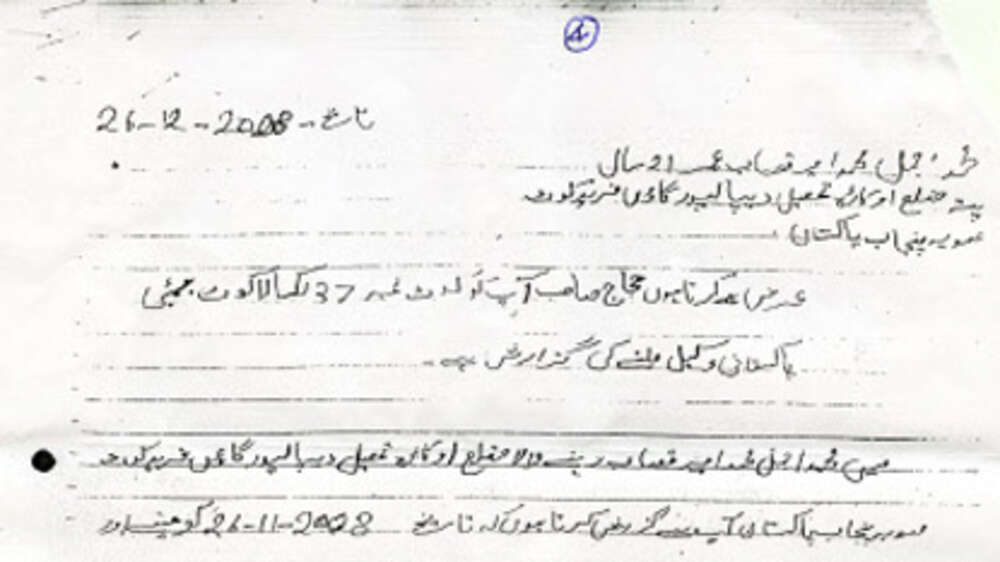 تاریخ - 26-12-2008
محمد اجمل محمد امیر قصاب عمر 21 سال
پتہ ضلع اوکاڑہ تحصیل دیپالپور گاؤں فریدکوٹ
صوبہ پنجاب پاکستان
عرض کرتا ہوں جج صاحب آپ کو کورٹ نمبر 37 قلعہ کورٹ ممبئی
پاکستانی وکیل ملنے کی گزارش ہے
میں محمد اجمل محمد امیر قصاب رہنے والا ضلع اوکاڑہ تحصیل دیپالپور گاؤں فریدکوٹ
صوبہ پنجاب پاکستان آپ سے گزارش کرتا ہوں کہ تاریخ 26-11-2008 کو میں اور